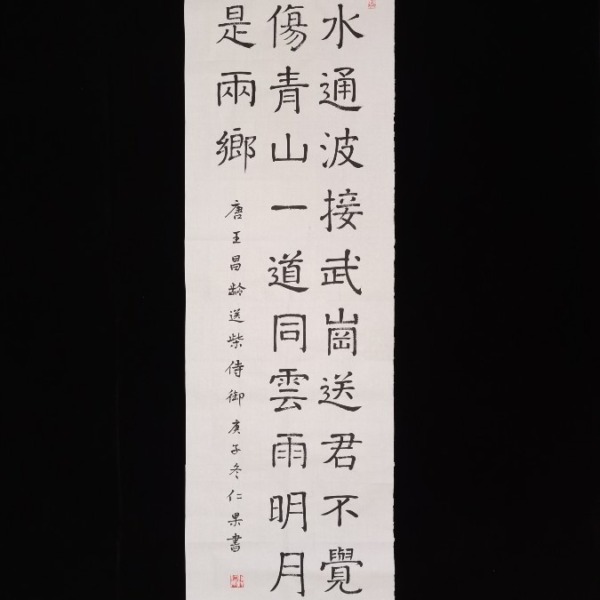 水通波接武崗送君不覺
傷青山一道同雲雨明月
是兩鄉
唐王昌齡送柴侍御庚子冬仁果書